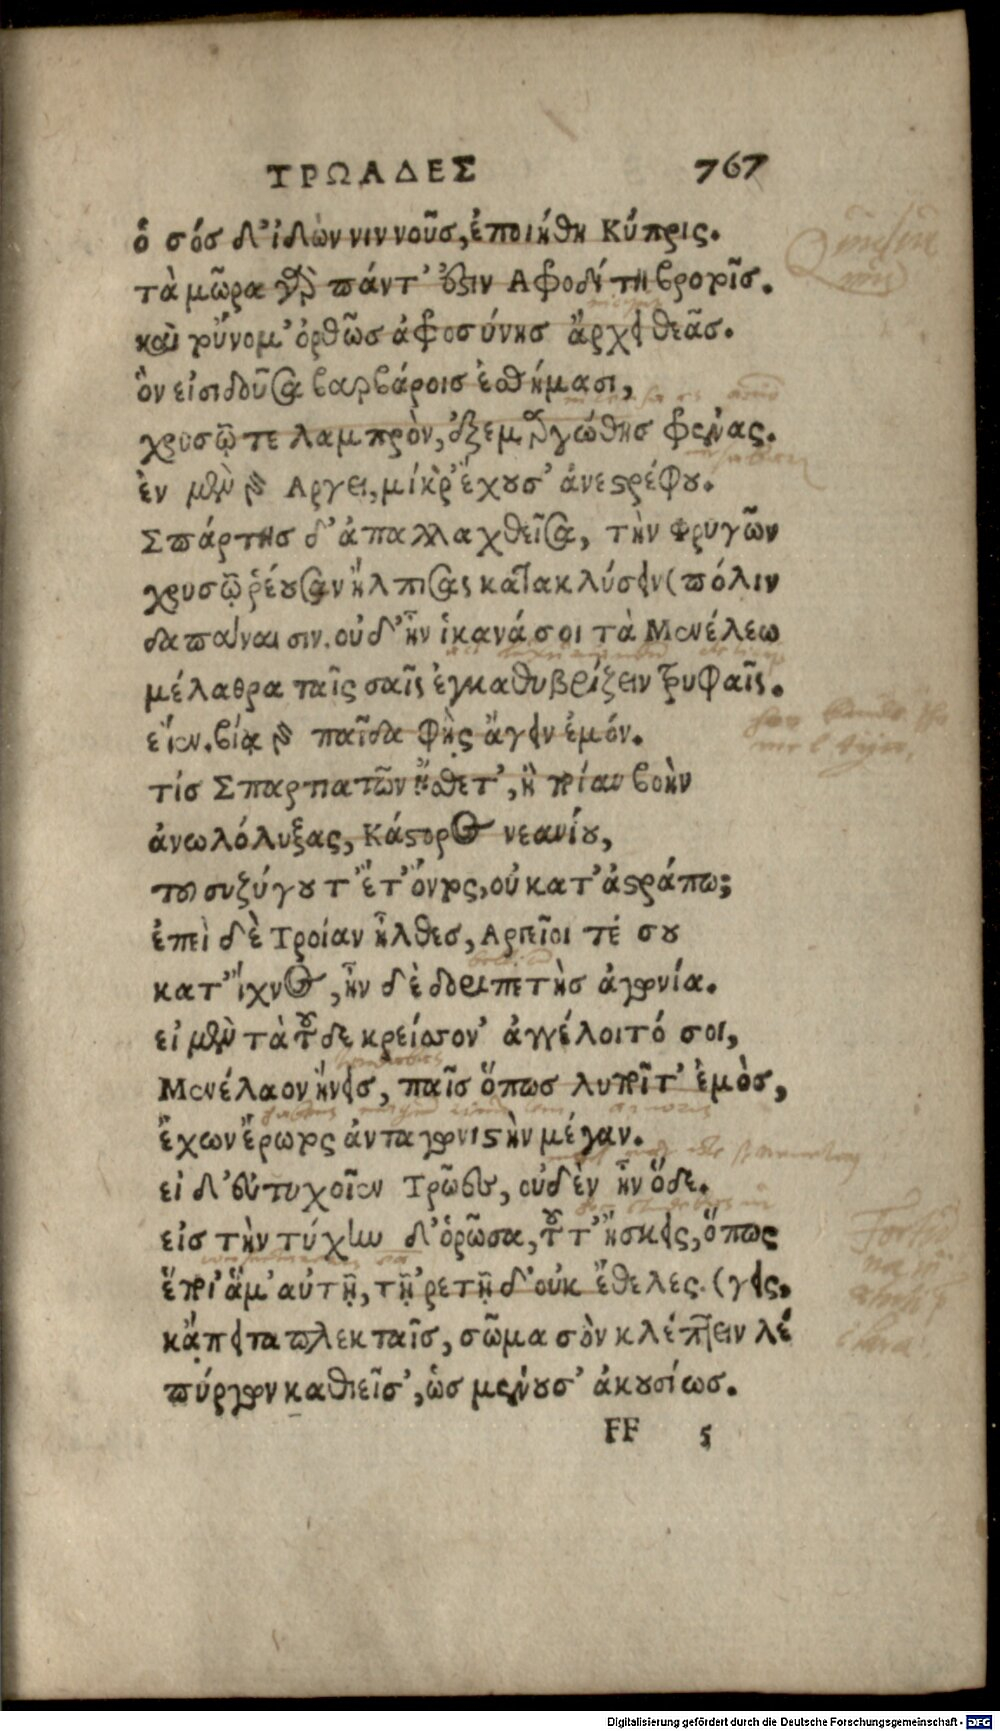 ΤΡΩΑΔΕΣ 767
ὁ σός δ' ἰδών νιν νοῦς, ἐποιήθη Κύπρις.
τὰ μῶρα γὰρ πάντ' ἐστὶν Αφροδίτη βροτοῖς.
καὶ τοὔνομ' ὀρθῶς ἀφροσύνης ἄρχει θεᾶς.
ὃν εἰσιδοῦσα βαρβάροις ἐσθήμασι,
χρυσῷ τε λαμπρὸν, ἐξεμαργώθης φρένας.
ἐν μὲν γὰρ Αργει, μίκρ' ἔχουσ' ἀνεστρέφου.
Σπάρτης δ' ἀπαλλαχθεῖσα, τὴν Φρυγῶν
χρυσῷ ῥέουσαν ἤλπισας κατακλύσειν (πόλιν
δαπάναισιν. οὐδ' ἦν ἱκανά σοι τὰ Μενέλεω
μέλαθρα ταῖς σαῖς ἐγκαθυβρίζειν τρυφαῖς.
εἶεν. βίᾳ γὰρ παῖδα φῂς ἄγειν ἐμόν.
τίς Σπαρτιατῶν ᾔσθετ', ἢ ποίαν βοὴν
ἀνωλόλυξας, Κάστορος νεανίου,
τοῦ συζύγου τ' ἔτ' ὄντος, οὐ κατ' ἄστρά πω;
ἐπεὶ δὲ Τροίαν ἦλθες, Αργεῖοι τέ σου
κατ' ἴχνος, ἦν δὲ δοριπετὴς ἀγωνία.
εἰ μὲν τὰ τοῦδε κρείσσον' ἀγγέλοιτό σοι,
Μενέλαον ᾔνεις, παῖς ὅπως λυποῖτ' ἐμὸς,
ἔχων ἔρωτος ἀνταγωνιστὴν μέγαν.
εἰ δ' εὐτυχοῖεν Τρῶες, οὐδὲν ἦν ὅδε.
εἰς τὴν τύχην δ' ὁρῶσα, τοῦτ' ἤσκεις, ὅπως
ἕποι' ἅμ' αὐτῇ, τῇ 'ρετῇ δ' οὐκ ἔθελες. (γεις,
κᾄπειτα πλεκταῖς, σῶμα σὸν κλέπτειν λέ
πύργων καθιεῖς', ὡς μένουσ' ἀκουσίως.
FF 5
Digitalisierung gefördert durch die Deutsche Forschungsgemeinschaft - DFG